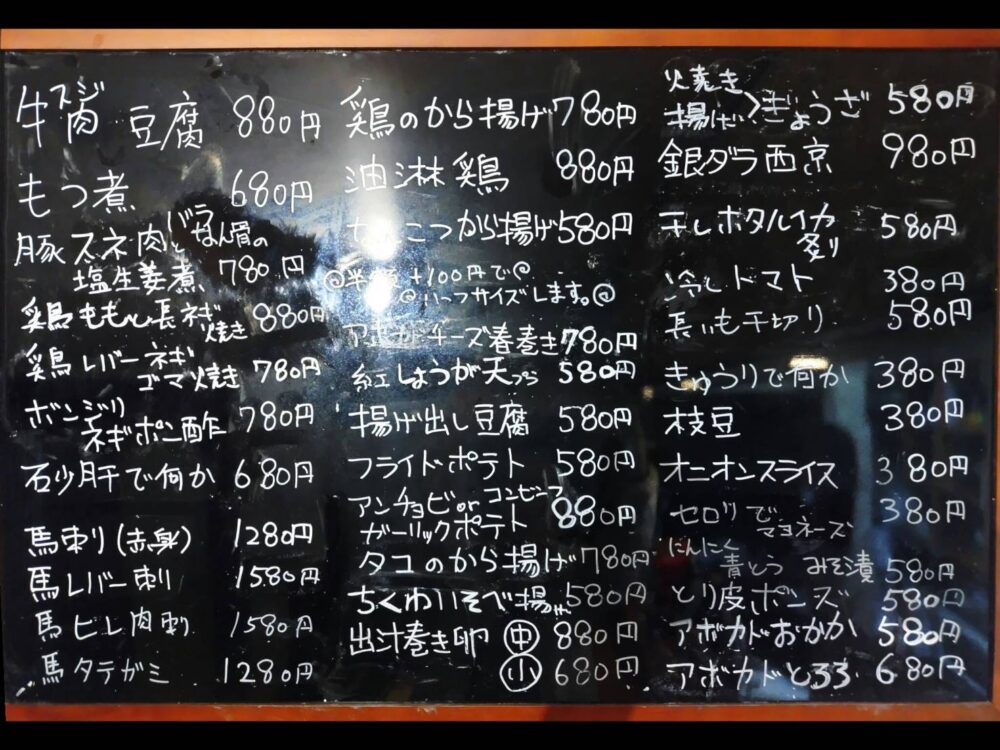 牛スジ肉豆腐 880円
もつ煮 680円
豚スネ肉とバラなん骨の
塩生姜煮 780円
鶏ももと長ネギ
焼き 880円
鶏レバーネギ
ゴマ焼き 780円
ボンジリ
ネギポン酢 780円
石少肝で何か 680円
馬刺り(赤身) 1280円
馬レバー刺し 1580円
馬ヒレ肉刺し 1580円
馬タテガミ 1280円
鶏のから揚げ 780円
油淋鶏 880円
なんこつから揚げ 580円
@半額 +100円で@
@ハーフサイズします。@
アボカドチーズ春巻き 780円
紅しょうが天ぷら 580円
揚げ出し豆腐 580円
フライドポテト 580円
アンチョビorコンビーフ
ガーリックポテト 880円
タコのから揚げ 780円
ちくわいそべ揚げ 580円
出汁巻き卵 中 880円
小 680円
焼き
揚げ ぎょうざ 580円
銀ダラ西京 980円
干しホタルイカ
炙り 580円
冷しトマト 380円
長いも千切り 580円
きゅうりで何か 380円
枝豆 380円
オニオンスライス 380円
セロリで
マヨネーズ 380円
にんにく
青とう みそ漬 580円
とり皮ポンズ 580円
アボカドおかか 580円
アボカドとろろ 680円